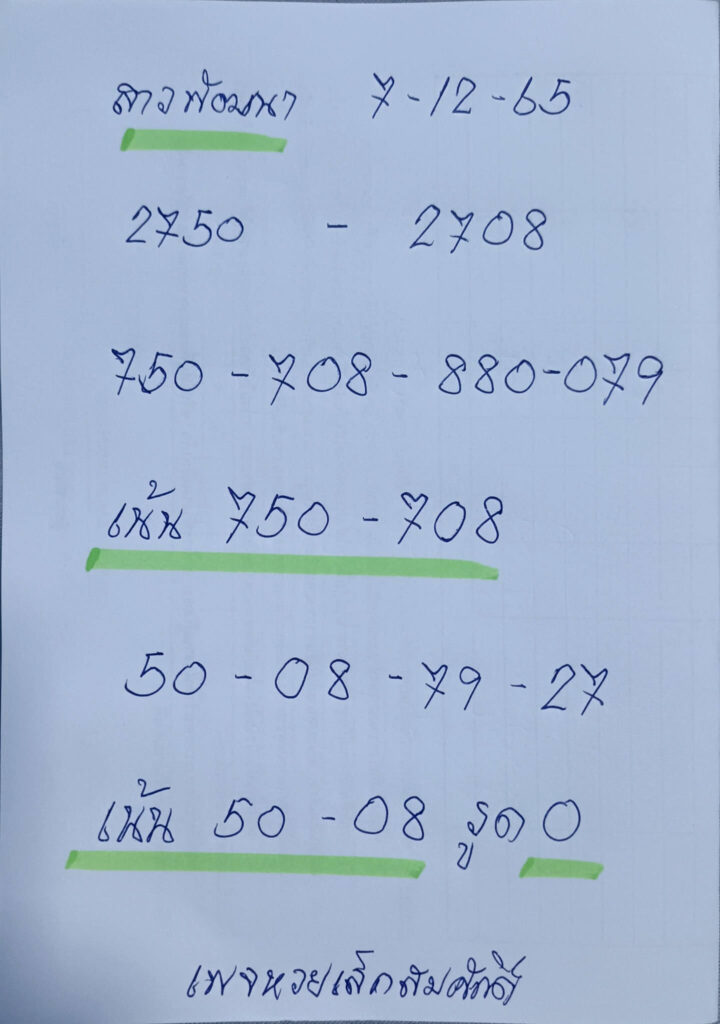 ลาวพัฒนา 7-12-65
2750 - 2708
750 - 708 - 880-079
เน้น 750 - 708
50 - 08 - 79 - 27
เน้น 50 - 08 รูด 0
เพจหวยเล็กสมศักดิ์